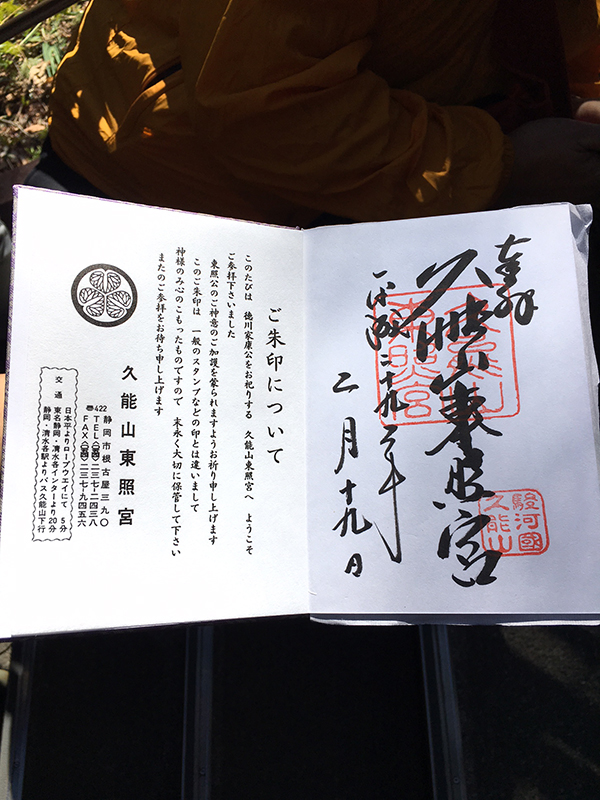 奉拝
久能山東照宮
平成二十九年
二月十九日
東照宮
駿河國
久能山
ご朱印について
このたびは 徳川家康公をお祀りする 久能山東照宮へ ようこそ
ご参拝下さいました
東照公のご神意のご加護を蒙られますようお祈り申し上げます
このご朱印は 一般のスタンプなどの印とは違いまして
神様のみ心のこもったものですので 末永く大切に保管して下さい
またのご参拝をお待ち申し上げます
久能山東照宮
〠422 静岡市根古屋三九〇
TEL(〇五四)二三七-二四三八
FAX(〇五四)二三七-九四五六
交通
日本平よりロープウエイにて 5分
東名静岡・清水各インターより20分
静岡・清水各駅よりバス久能山下行